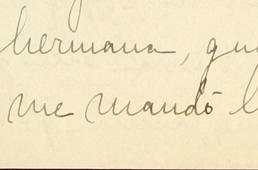 hermana, que
me mandó